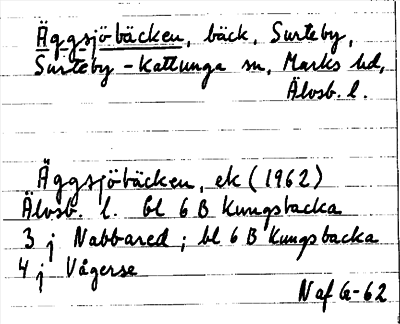 Äggsjöbäcken, bäck, Surteby,
Surteby-Kattunga sn, Marks hd,
Älvsb. l.
Äggsjöbäcken, ek (1962)
Älvsb. l. bl 6 B Kungsbacka
3 j Nabbared; bl 6 B Kungsbacka
4 j Vågerse
NafG-62